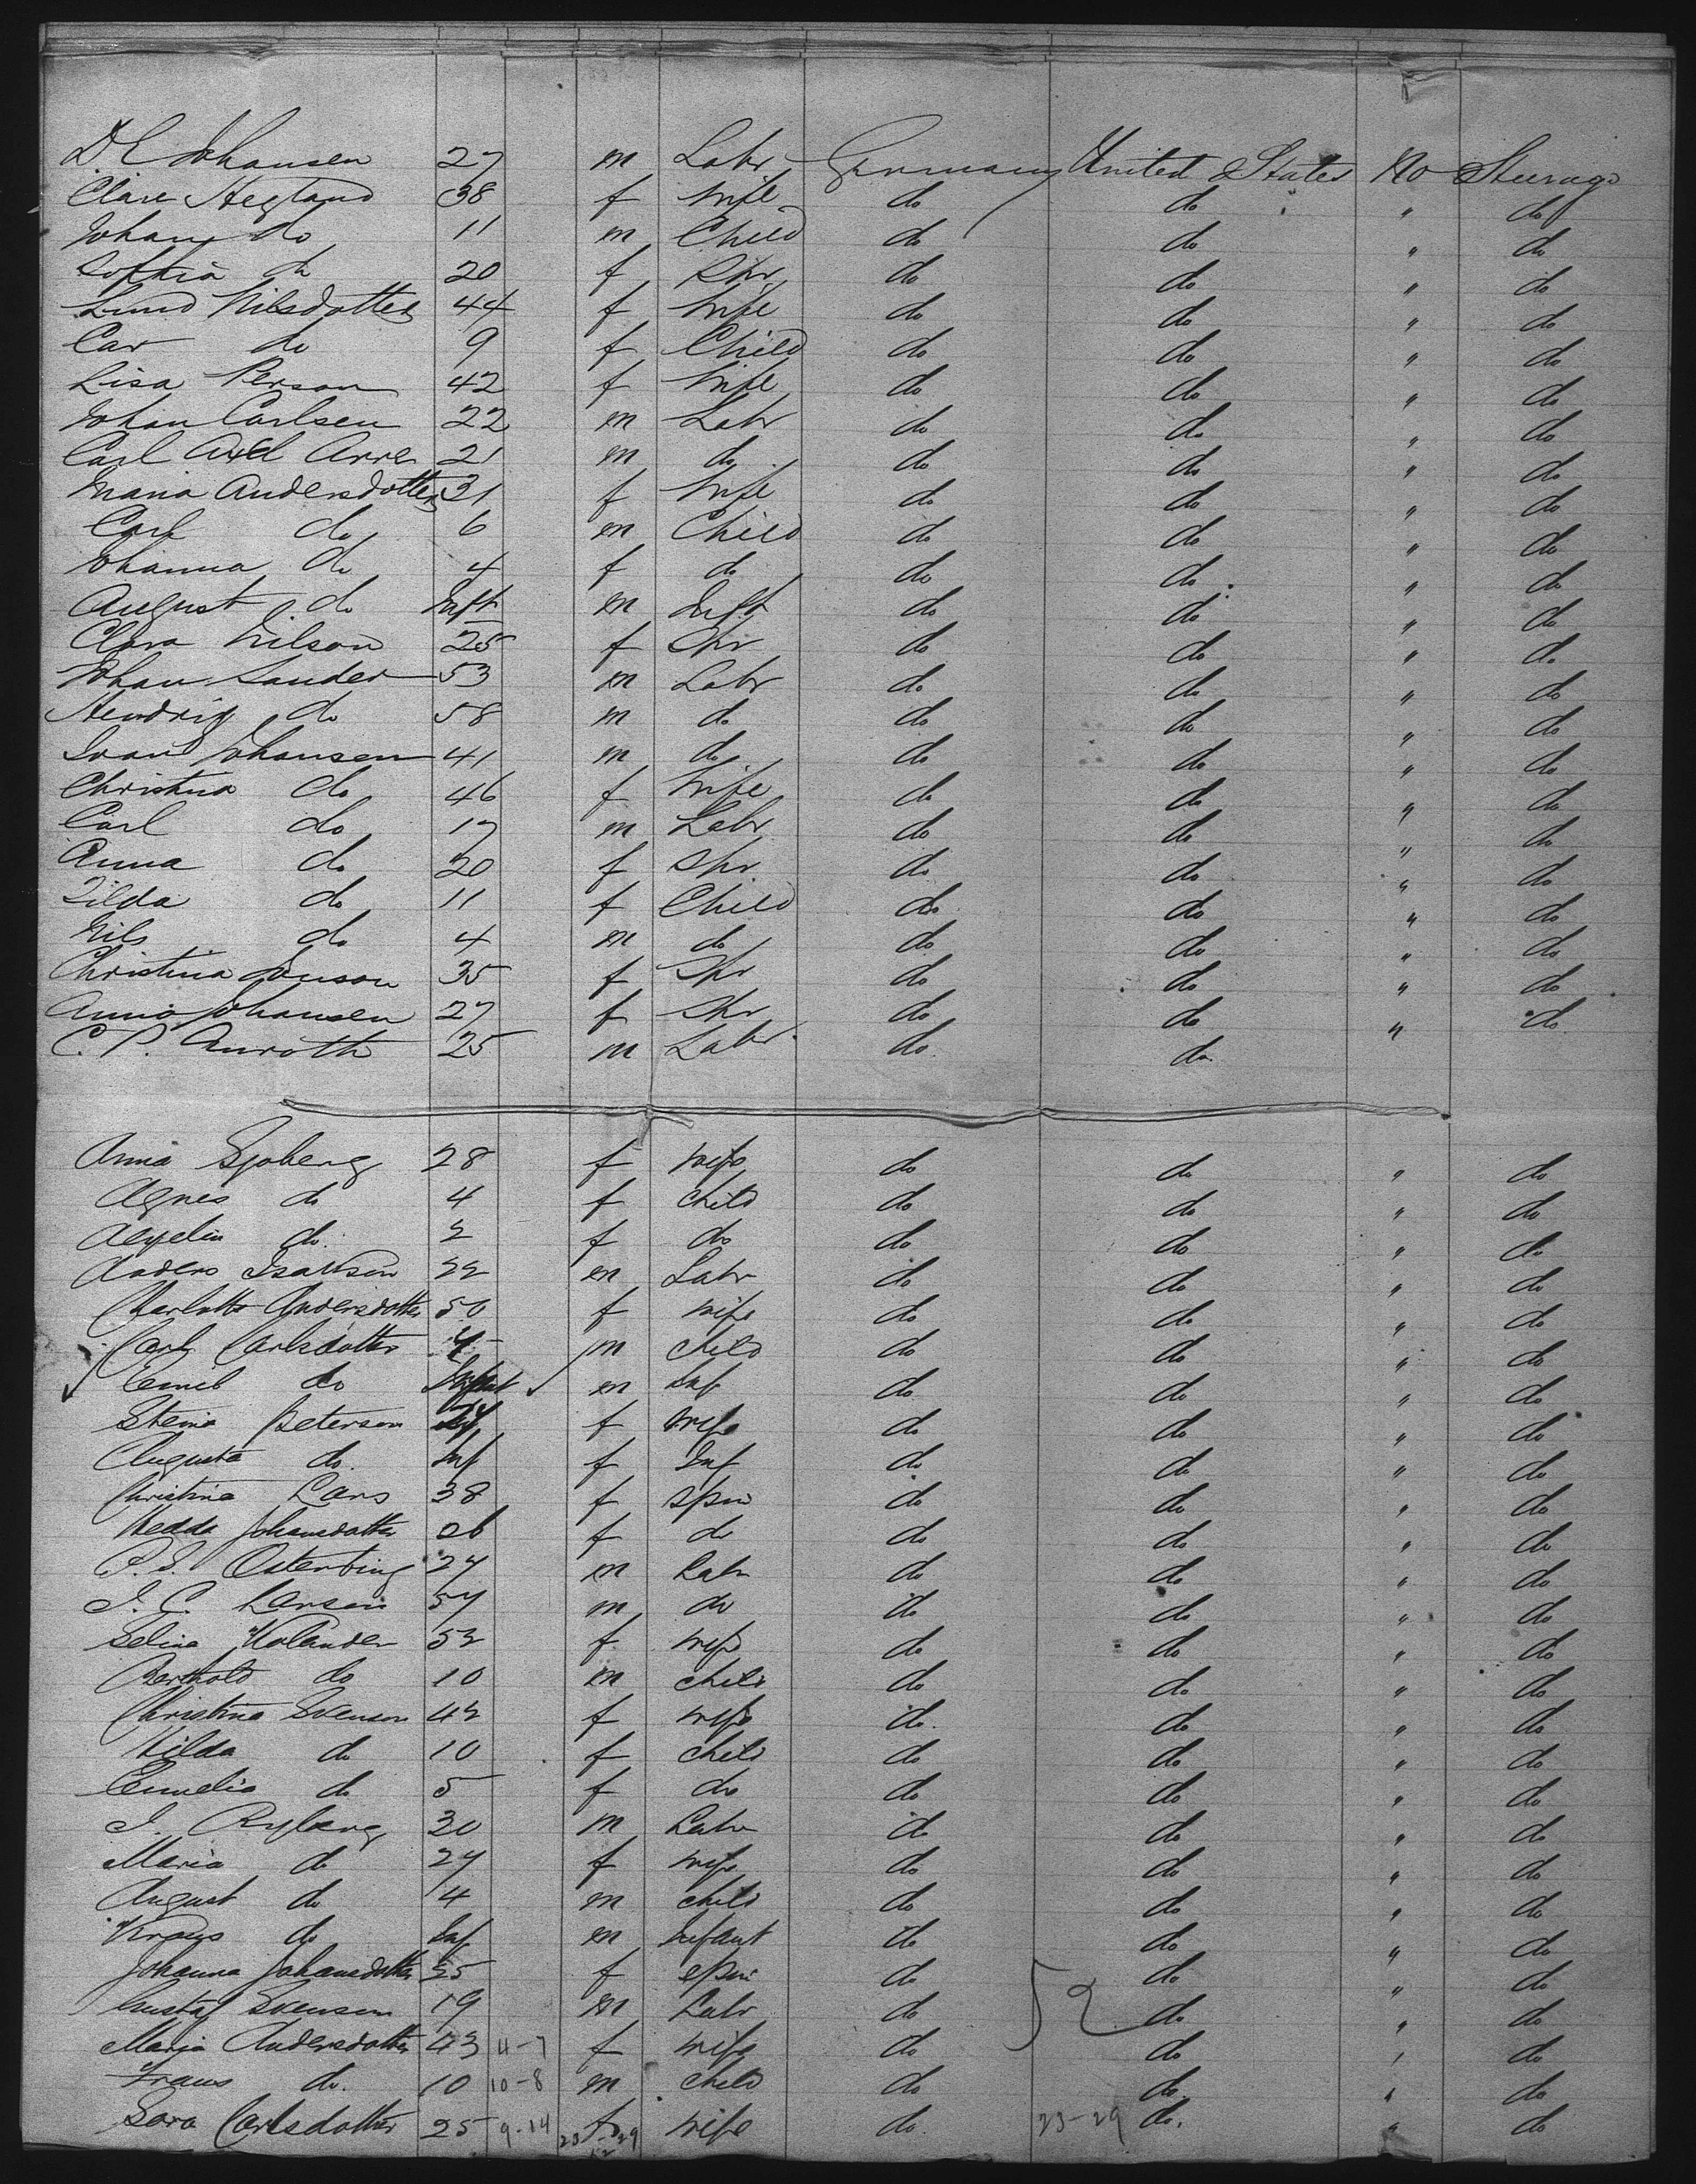 D. E. Johansen 27 m Labr Germany United States No Steerage
Clare Hegland 38 f Wife do do " do
Johan do 11 m Child do do " do
Sophia do 20 f Spr do do " do
Lund Nilsdotter 44 f Wife do do " do
Car do 9 f Child do do " do
Lisa Person 42 f Wife do do " do
Johan Carlsen 22 m Labr do do " do
Carl Axel 21 m do do do " do
Maria Andersdotter 31 f Wife do do " do
Carl do 6 m Child do do " do
Johanna do 4 f do do do " do
August do Inft m Inft do do " do
Clara Nilson 25 f Spr do do " do
Johan Sander 53 m Labr do do " do
Hendrik do 58 m do do do " do
Svan Johansen 41 m do do do " do
Christina do 46 f Wife do do " do
Carl do 17 m Labr do do " do
Anna do 20 f Spr do do " do
Tilda do 11 f Child do do " do
Nils do 4 m do do do " do
Christina Jonson 35 f Spr do do " do
Anna Johansen 27 f Spr do do " do
C. P. Anroth 25 m Labr do do
Anna Sjoberg 28 f wife do do " do
Agnes do 4 f child do do " do
do 2 f do do do " do
Anders Isakson 22 m Labr do do " do
Charlotte Andersdotter 50 f wife do do " do
Carl Carlsdotter 4 m child do do " do
Emil do Infant m Inf do do " do
Stena Peterson f wife do do " do
Augusta do Inf f Inf do do " do
Christina Lars 38 f spin do do " do
Hedda Johansdotter 26 f do do do " do
P. S. 24 m Labr do do " do
J. C. Larson 54 m do do do " do
Selina Holander 52 f wife do do " do
Berthold do 10 m child do do " do
Christina Svenson 42 f wife do do " do
Hilda do 10 f child do do " do
Emelia do 5 f do do do " do
J. Ryberg 30 m Labr do do " do
Maria do 24 f wife do do " do
August do 4 m child do do " do
do Inf m Infant do do " do
Johanna Johansdotter 25 f spin do do " do
Gustaf Svenson 19 m Labr do do " do
52
Marja Andersdotter 43 4-7 f wife do do " do
Frans do 10 10-8 m child do do " do
Sara Carlsdotter 25 9-14 f wife do 23-29 do " do